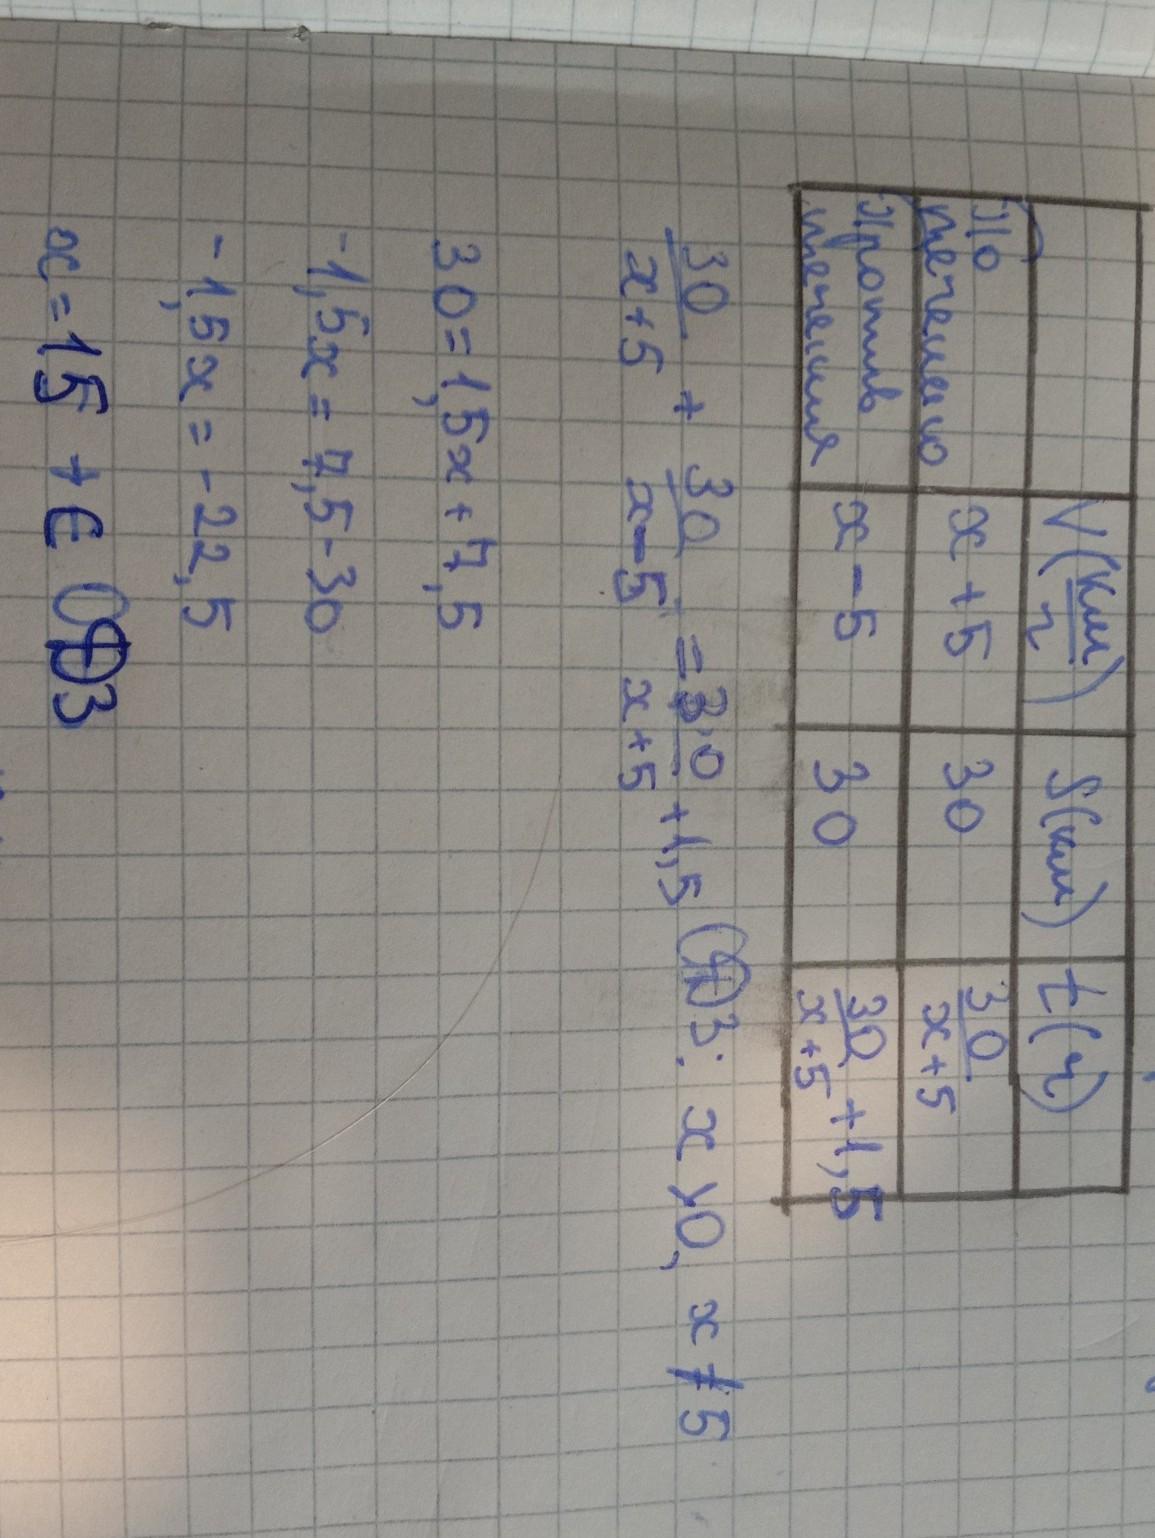 V(км/ч) S(км) t(ч)
По течению x+5 30 30/x+5
Против течения x-5 30 30/x+5 +1,5
30/x+5 + 30/x-5 = 30/x+5 +1,5 ОДЗ: x>0, x≠5
30=1,5x+7,5
-1,5x=7,5-30
-1,5x=-22,5
x=15 + ∈ ОДЗ